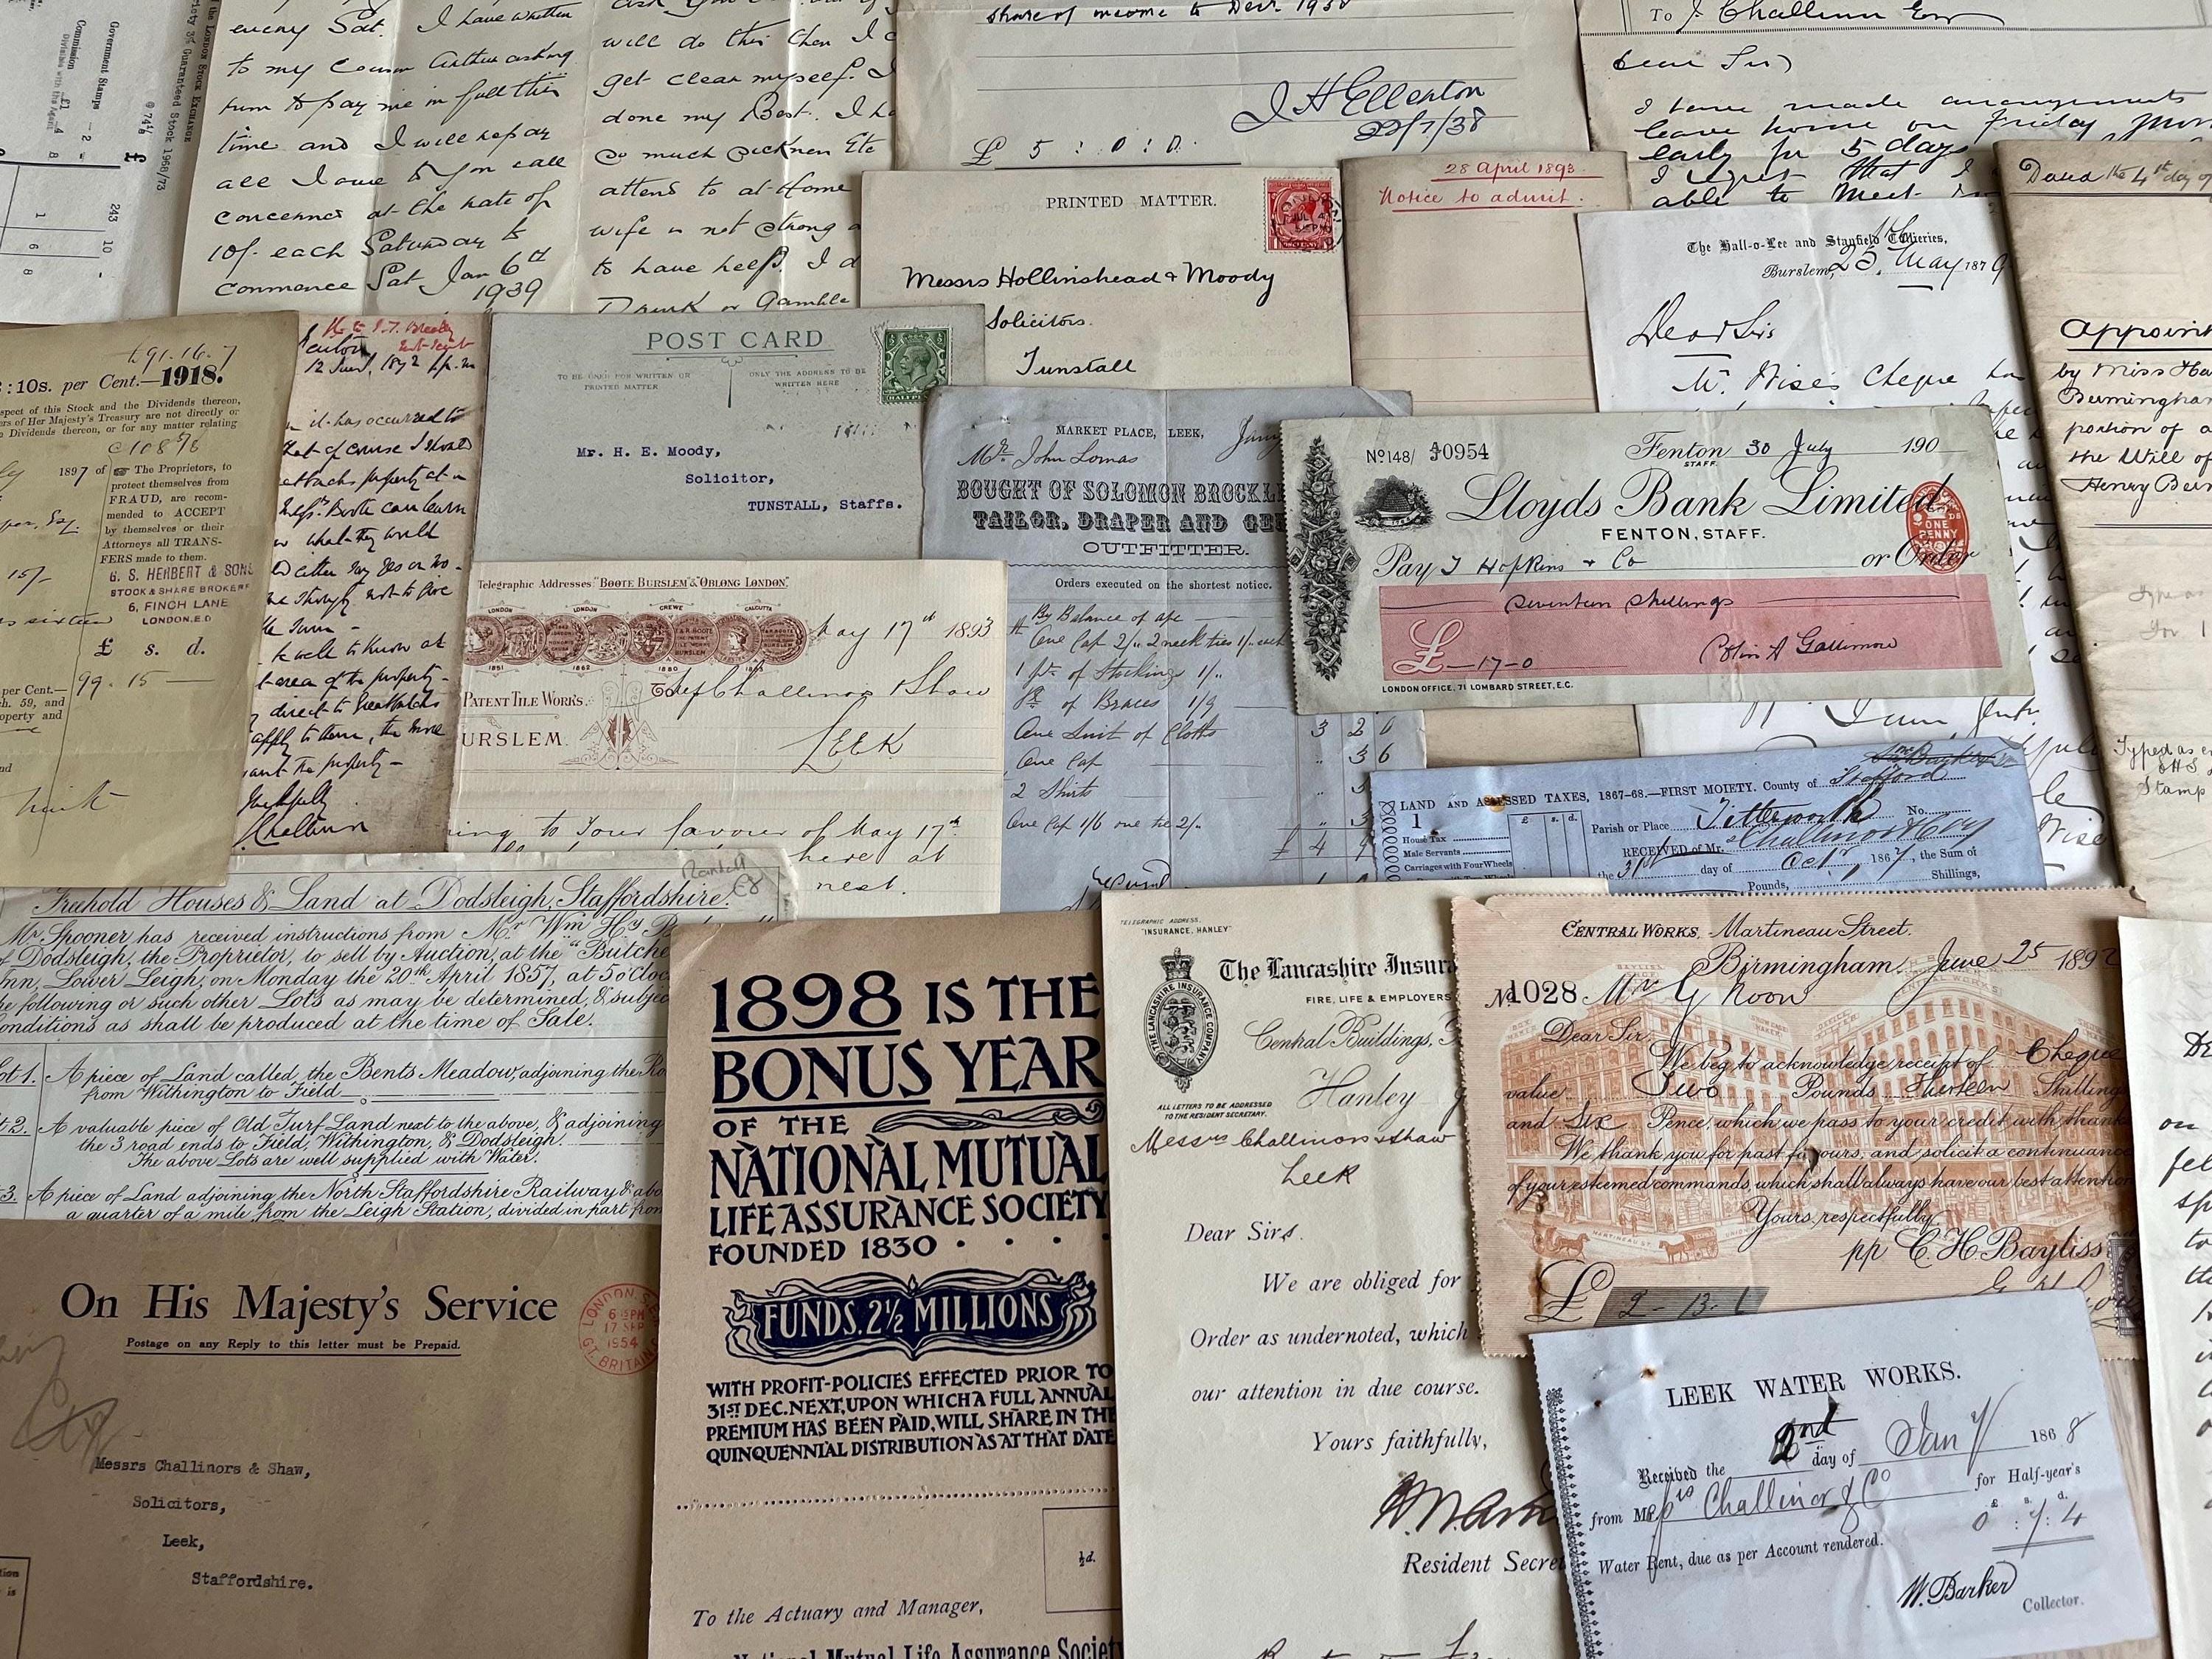 Government Stamps - 2 -
Commission £1 4 8
Divisible with the Agent
@ 74 1/
£
243 10 -
3% Guaranteed Stock 1968/73
the London Stock Exchange
1 6 8
every Sat. I have written
to my Cousin Arthur asking
him to pay me in full this
time and I will repay
all I owe to you call
concerned at the rate of
10/- each Saturday to
commence Sat Jan 6th
1939
will do this then I c
get clear myself. I
done my Best. I ha
so much sickness Etc
attend to at Home
wife is not strong a
to have help. I d
Drink or Gamble
share of income to Decr. 1938
J H Ellerton
22/7/38
£ 5 : 0 : 0
To J. Challinor Esq
Dear Sir
I have made arrangements
leave home on Friday
early for 5 days
I regret that I
able to meet
PRINTED MATTER.
Messrs Hollinshead & Moody
Solicitors.
Tunstall
28 April 1893.
Notice to admit.
The Hall-o-Lee and Stanfield Collieries,
Burslem, 25. May 1879
Dear Sirs
Mr. Wise's Cheque has
Dated the 4th day of
Appoint
by Miss Ha
Birmingham
portion of a
the Will of
Henry Ber
Typed as
Stamp
£91.16.7
: 10s. per Cent.—1918.
spect of this Stock and the Dividends thereon,
ers of Her Majesty's Treasury are not directly or
Dividends thereon, or for any matter relating
1897 of
The Proprietors, to
protect themselves from
FRAUD, are recom-
mended to ACCEPT
by themselves or their
Attorneys all TRANS-
FERS made to them.
15/-
G. S. HERBERT & SONS
STOCK & SHARE BROKERS
6, FINCH LANE
LONDON. E.C
£ s. d.
per Cent.— 99 . 15 —
ch. 59, and
operty and
it has occurred to
that of course I should
what they would
either say Yes or No.
well to know at
area of the property
direct to
apply to them, the more
want the property—
POST CARD
TO BE USED FOR WRITTEN OR
PRINTED MATTER
ONLY THE ADDRESS TO BE
WRITTEN HERE
HALFPENNY
Mr. H. E. Moody,
Solicitor,
TUNSTALL, Staffs.
MARKET PLACE, LEEK,
Mr. John Lomas
BOUGHT OF SOLOMON BROCKL
TAILOR, DRAPER AND GE
OUTFITTER.
Orders executed on the shortest notice.
By Balance of
One Cap 2/. 2 neck ties 1/. each
1 pr of Stockings 1/.
Pr. of Braces 1/9
One Suit of Cloths 3 2 6
One Cap " 3 6
2 Shirts
One Cap 1/6 one tie 2/.
No 148/ 30954
Fenton 30 July 190
STAFF.
Lloyds Bank Limited
FENTON, STAFF.
ONE
PENNY
Pay J Hopkins & Co or Order
Seventeen Shillings
£ — 17 — 0
Colin A Gallimore
LONDON OFFICE, 71 LOMBARD STREET, E.C.
Telegraphic Addresses "BOOTE BURSLEM" & "OBLONG LONDON"
LONDON LONDON CREWE CALCUTTA
1851 1862 1880 1883
May 17th 1893
PATENT TILE WORKS.
To Messrs Challinors & Shaw
URSLEM.
LEEK
ing to Your favour of May 17th
here at
next.
LAND AND ASSESSED TAXES, 1867-68.—FIRST MOIETY. County of Stafford
1
£ s. d.
House Tax
Male Servants
Carriages with Four Wheels
Parish or Place Tittesworth No.
RECEIVED of Mr. Challinor & Co
the 31st day of Oct. 1867, the Sum of
Pounds, Shillings,
£8
Freehold Houses & Land at Dodsleigh, Staffordshire.
Mr. Spooner has received instructions from Mr. Wm Hy. B
of Dodsleigh, the Proprietor, to sell by Auction, at the "Butche
Inn, Lower Leigh, on Monday the 20th April 1857, at 5 o'Cloc
he following or such other Lots as may be determined, & subjec
onditions as shall be produced at the time of Sale.
ot 1. A piece of Land called the Bents Meadow, adjoining the Ro
from Withington to Field
t 2. A valuable piece of Old Turf Land next to the above, & adjoining
the 3 road ends to Field, Withington, & Dodsleigh.
The above Lots are well supplied with Water.
3. A piece of Land adjoining the North Staffordshire Railway & abo
a quarter of a mile from the Leigh Station, divided in part from
On His Majesty's Service
Postage on any Reply to this letter must be Prepaid.
LONDON, S.
6 15 PM
17 SEP
1954
GT. BRITAIN
Messrs Challinors & Shaw,
Solicitors,
Leek,
Staffordshire.
1898 IS THE
BONUS YEAR
OF THE
NATIONAL MUTUAL
LIFE ASSURANCE SOCIETY
FOUNDED 1830 . . . .
FUNDS. 2½ MILLIONS
WITH PROFIT-POLICIES EFFECTED PRIOR TO
31ST DEC. NEXT, UPON WHICH A FULL ANNUAL
PREMIUM HAS BEEN PAID, WILL SHARE IN THE
QUINQUENNIAL DISTRIBUTION AS AT THAT DATE
½d.
To the Actuary and Manager,
National Mutual Life Assurance Society
TELEGRAPHIC ADDRESS.
"INSURANCE, HANLEY"
The Lancashire Insura
FIRE, LIFE & EMPLOYERS
THE LANCASHIRE INSURANCE COMPANY
Central Buildings,
Hanley
ALL LETTERS TO BE ADDRESSED
TO THE RESIDENT SECRETARY.
Messrs Challinors & Shaw
Leek
Dear Sirs.
We are obliged for
Order as undernoted, which
our attention in due course.
Yours faithfully,
Resident Secre
CENTRAL WORKS, Martineau Street.
Birmingham, June 25 189
No 1028 Mr G Noon
Dear Sir
We beg to acknowledge receipt of Cheque
value Two Pounds Thirteen Shilling
and Six Pence, which we pass to your credit with thank
We thank you for past favours, and solicit a continuance
of your esteemed commands, which shall always have our best attention
Yours respectfully,
pp C. H. Bayliss
MARTINEAU ST.
£ 2 - 13 - 6
LEEK WATER WORKS.
Received the 2nd day of Jany 1868
from Messrs Challinor & Co for Half-year's
£ s. d.
0 : 7 : 4
Water Rent, due as per Account rendered.
W. Barker
Collector.